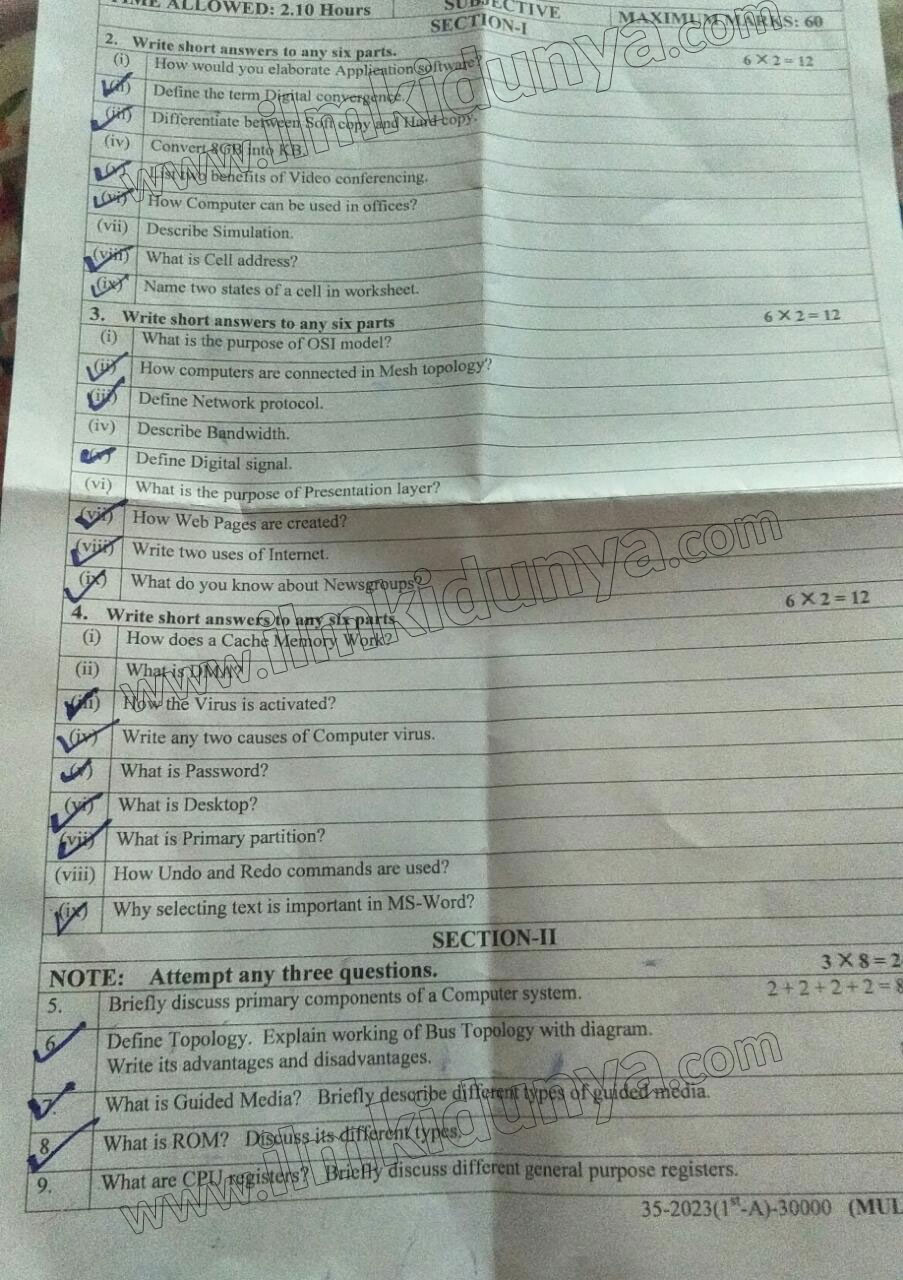 TIME ALLOWED: 2.10 Hours SUBJECTIVE MAXIMUM MARKS: 60
SECTION-I
2. Write short answers to any six parts. 6 × 2 = 12
(i) How would you elaborate Application software?
(ii) Define the term Digital convergence.
(iii) Differentiate between Soft copy and Hard copy.
(iv) Convert 8GB into KB.
(v) List two benefits of Video conferencing.
(vi) How Computer can be used in offices?
(vii) Describe Simulation.
(viii) What is Cell address?
(ix) Name two states of a cell in worksheet.
3. Write short answers to any six parts 6 × 2 = 12
(i) What is the purpose of OSI model?
(ii) How computers are connected in Mesh topology?
(iii) Define Network protocol.
(iv) Describe Bandwidth.
(v) Define Digital signal.
(vi) What is the purpose of Presentation layer?
(vii) How Web Pages are created?
(viii) Write two uses of Internet.
(ix) What do you know about Newsgroups?
4. Write short answers to any six parts 6 × 2 = 12
(i) How does a Cache Memory Work?
(ii) What is DMA?
(iii) How the Virus is activated?
(iv) Write any two causes of Computer virus.
(v) What is Password?
(vi) What is Desktop?
(vii) What is Primary partition?
(viii) How Undo and Redo commands are used?
(ix) Why selecting text is important in MS-Word?
SECTION-II
NOTE: Attempt any three questions. 3 × 8 = 2
5. Briefly discuss primary components of a Computer system. 2 + 2 + 2 + 2 = 8
6. Define Topology. Explain working of Bus Topology with diagram.
Write its advantages and disadvantages.
7. What is Guided Media? Briefly describe different types of guided media.
8. What is ROM? Discuss its different types.
9. What are CPU registers? Briefly discuss different general purpose registers.
35-2023(1st-A)-30000 (MUL
www.ilmkidunya.com
www.ilmkidunya.com
www.ilmkidunya.com